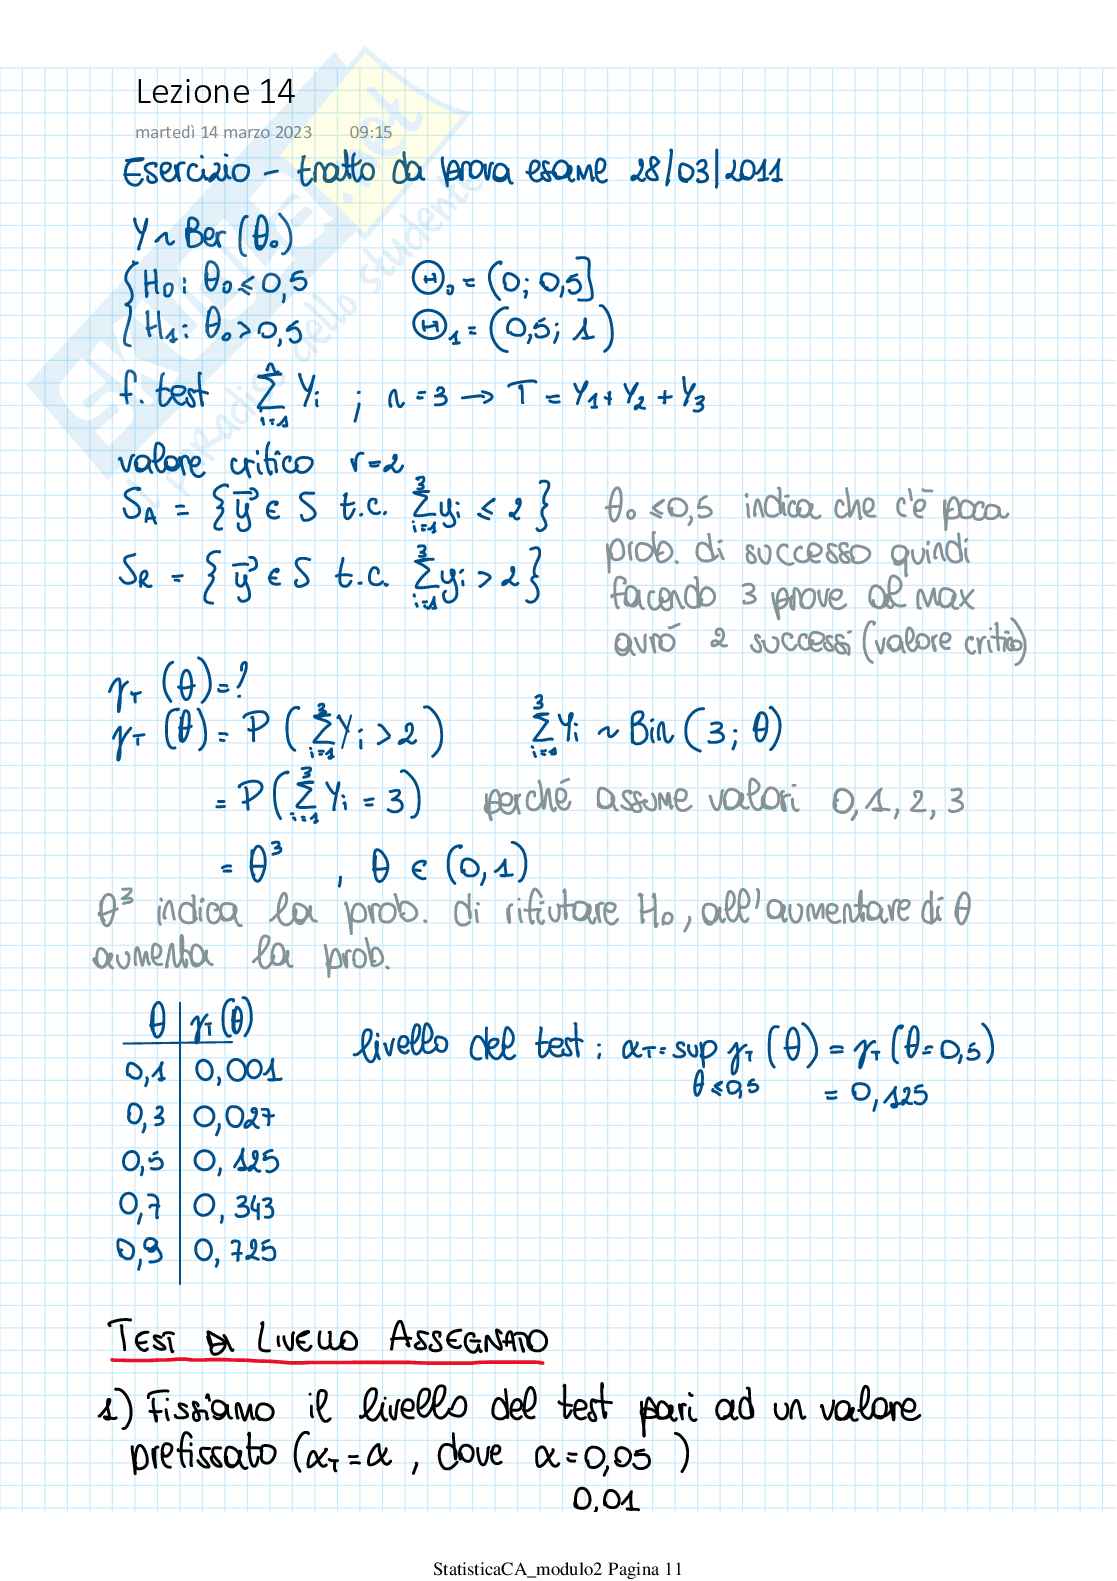 Lezione 14
martedì 14 marzo 2023 09:15
Esercizio - tratto da prova esame 28/03/2011
Y ~ Ber (θ₀)
{ H₀: θ₀ ⩽ 0,5 Θ₀ = (0; 0,5]
{ H₁: θ₀ > 0,5 Θ₁ = (0,5; 1)
f. test Σⁿᵢ₌₁ Yᵢ ; n = 3 → T = Y₁ + Y₂ + Y₃
valore critico r = 2
S_A = { y⃗ ∈ S t.c. Σ³ᵢ₌₁ yᵢ ⩽ 2 }
S_R = { y⃗ ∈ S t.c. Σ³ᵢ₌₁ yᵢ > 2 }
θ₀ ⩽ 0,5 indica che c'è poca
prob. di successo quindi
facendo 3 prove al max
avró 2 successi (valore critico)
γ_T (θ) = ?
γ_T (θ) = P ( Σ³ᵢ₌₁ Yᵢ > 2 ) Σ³ᵢ₌₁ Yᵢ ~ Bin (3; θ)
= P ( Σ³ᵢ₌₁ Yᵢ = 3 ) perché assume valori 0, 1, 2, 3
= θ³ , θ ∈ (0,1)
θ³ indica la prob. di rifiutare H₀, all'aumentare di θ
aumenta la prob.
θ | γ_T (θ)
0,1 | 0,001
0,3 | 0,027
0,5 | 0,125
0,7 | 0,343
0,9 | 0,725
livello del test: α_T = sup γ_T (θ) = γ_T (θ = 0,5)
θ ⩽ 0,5 = 0,125
TEST DI LIVELLO ASSEGNATO
1) Fissiamo il livello del test pari ad un valore
prefissato (α_T = α , dove α = 0,05 )
0,01
StatisticaCA_modulo2 Pagina 11